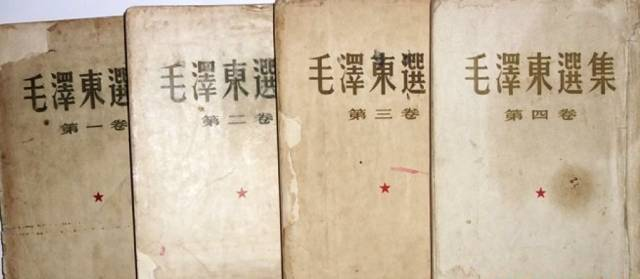 毛澤東選
第一卷
毛澤東選
第二卷
毛澤東選
第三卷
毛澤東選集
第四卷